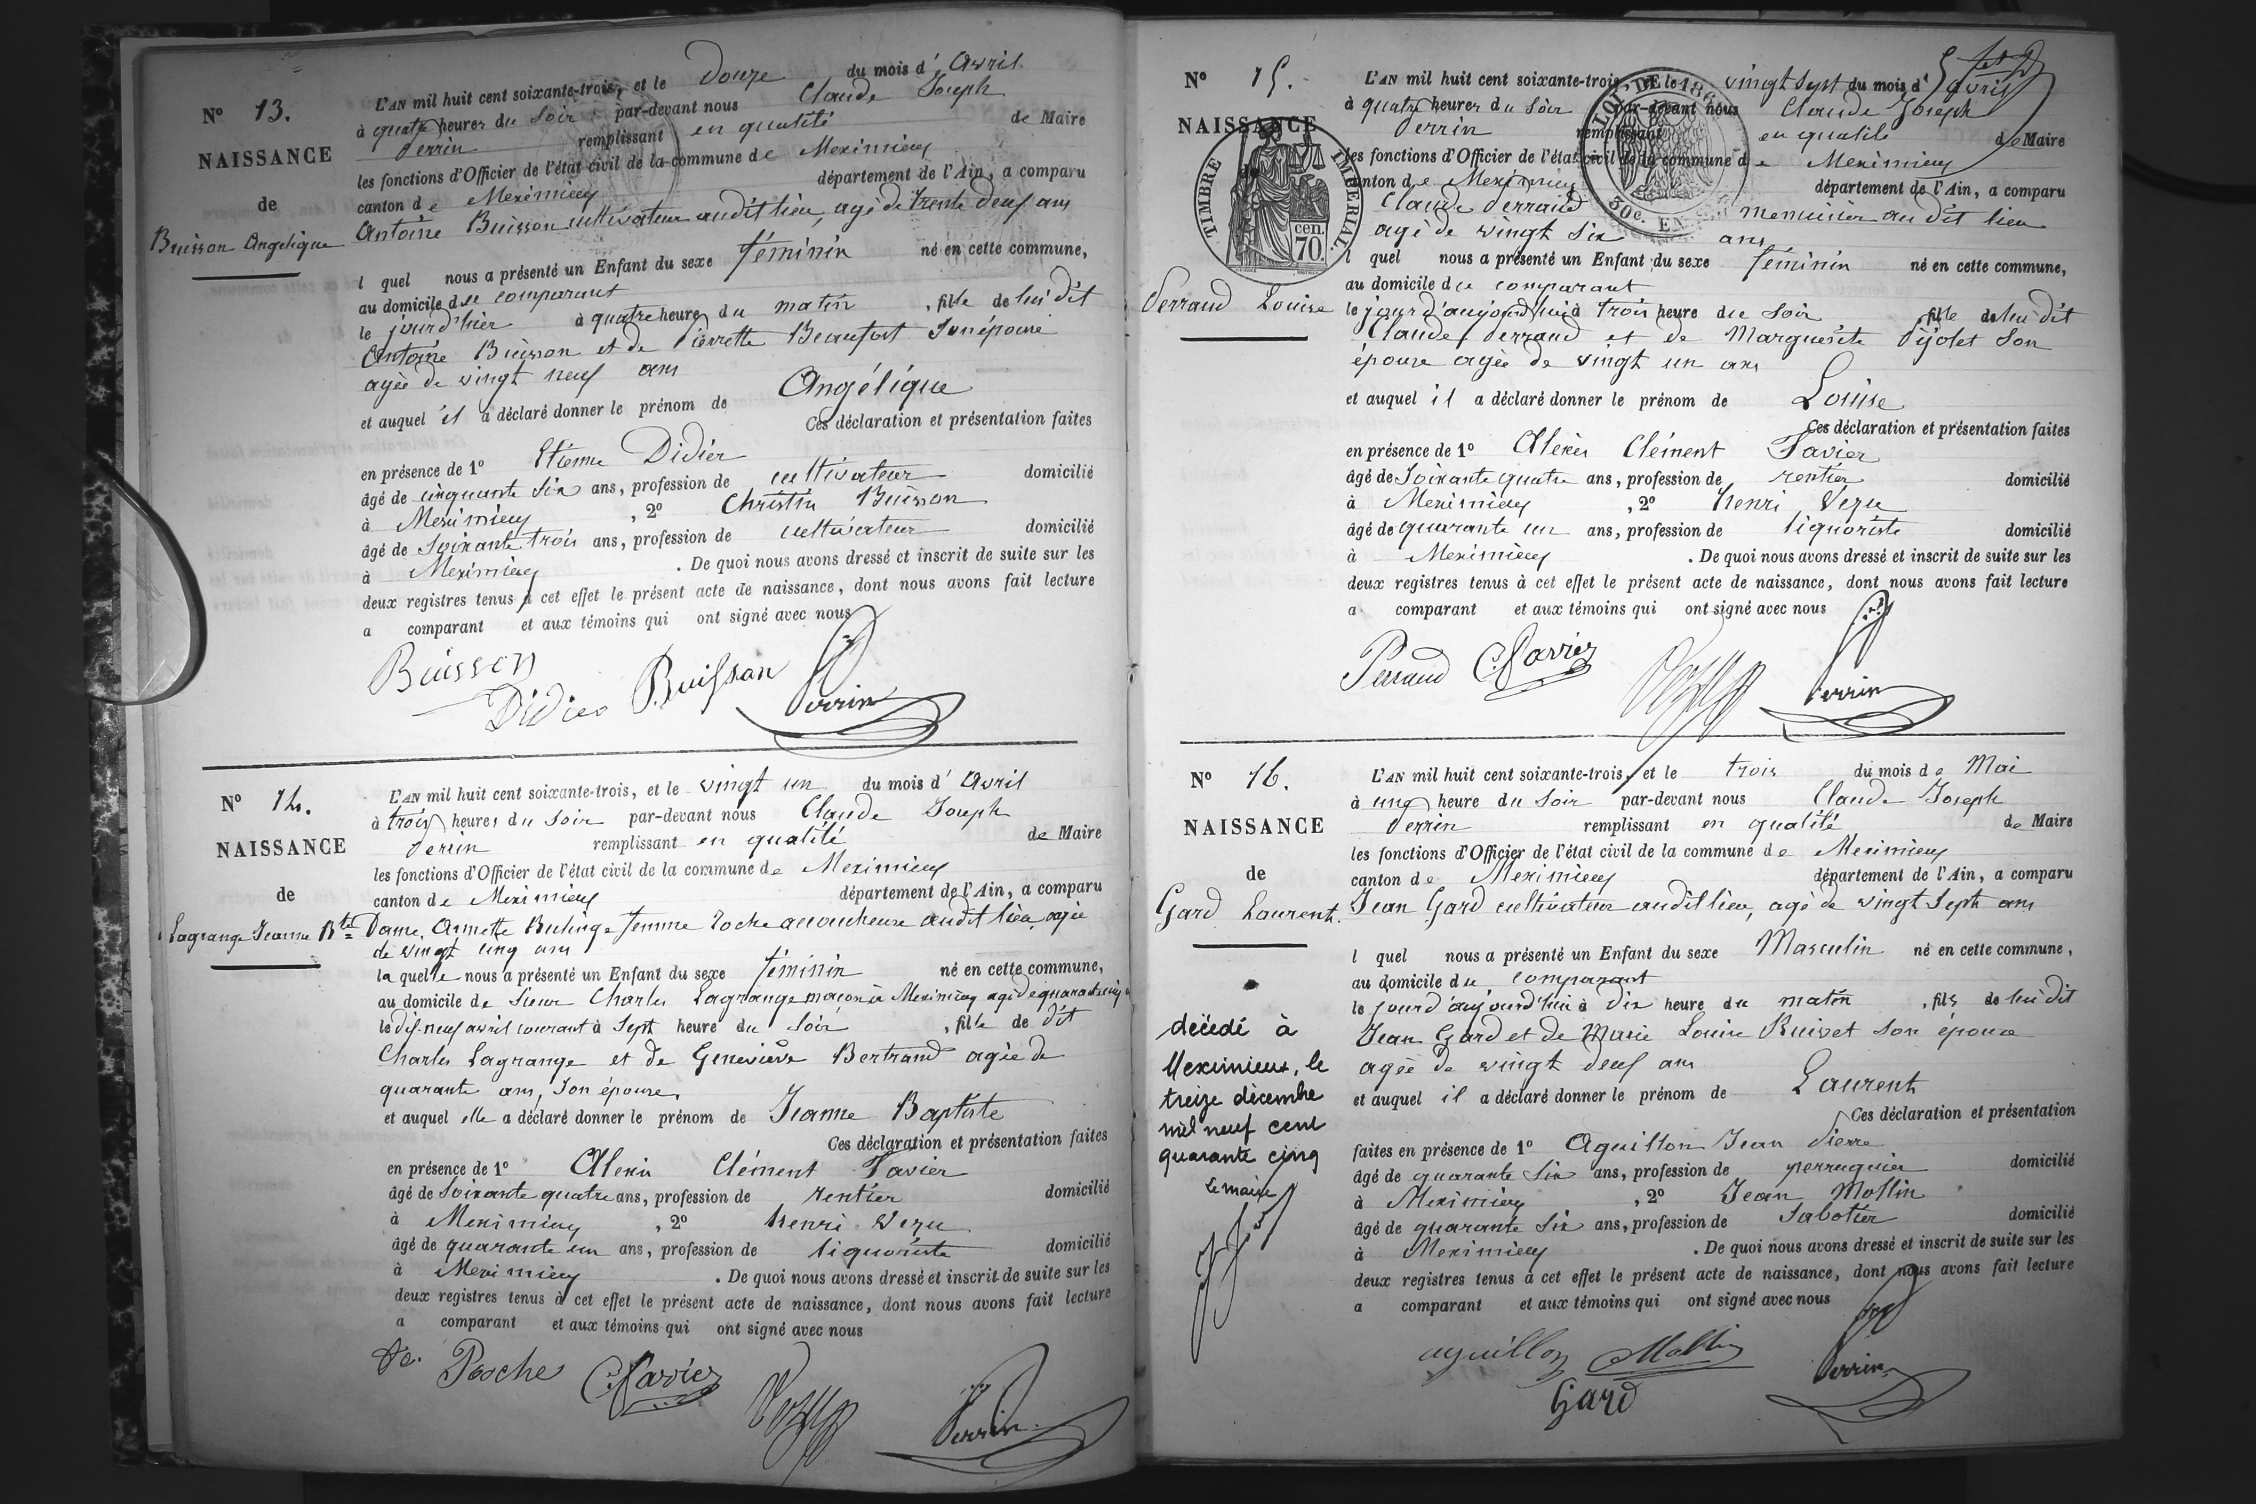 N° 13.
NAISSANCE
de
Buisson Angelique
L'AN mil huit cent soixante-trois, et le Douze du mois d' Avril
à quatre heures du Soir par-devant nous Claude Joseph
Perrin remplissant en qualité de Maire
les fonctions d'Officier de l'état civil de la commune de Meximieux
canton de Meximieux département de l'Ain, a comparu
Antoine Buisson cultivateur audit lieu, agé de trente deux ans
l quel nous a présenté un Enfant du sexe féminin né en cette commune,
au domicile du comparant
le jour d'hier à quatre heure du matin , fille de lui dit
Antoine Buisson et de Pierrette Beaufort Son épouse
agée de vingt neuf ans
et auquel il a déclaré donner le prénom de Angélique
Ces déclaration et présentation faites
en présence de 1° Etienne Didier
âgé de cinquante six ans, profession de cultivateur domicilié
à Meximieux , 2° Christin Buisson
âgé de Soixante trois ans, profession de cultivateur domicilié
à Meximieux . De quoi nous avons dressé et inscrit de suite sur les
deux registres tenus à cet effet le présent acte de naissance, dont nous avons fait lecture
a comparant et aux témoins qui ont signé avec nous
Buisson
Didier Buisson Perrin
N° 14.
NAISSANCE
de
Lagrange Jeanne Bte
L'AN mil huit cent soixante-trois, et le vingt un du mois d' Avril
à trois heures du Soir par-devant nous Claude Joseph
Perrin remplissant en qualité de Maire
les fonctions d'Officier de l'état civil de la commune de Meximieux
canton de Meximieux département de l'Ain, a comparu
Dame Annette femme Poche accoucheuse audit lieu, agée
de vingt cinq ans
la quelle nous a présenté un Enfant du sexe féminin né en cette commune,
au domicile de Sieur Charles Lagrange maçon à Meximieux agé de quarante cinq
le dix-neuf avril courant à Sept heure du Soir , fille de dit
Charles Lagrange et de Geneviève Bertrand agée de
quarante ans, Son épouse,
et auquel elle a déclaré donner le prénom de Jeanne Baptiste
Ces déclaration et présentation faites
en présence de 1° Alexis Clément Favier
âgé de Soixante quatre ans, profession de rentier domicilié
à Meximieux , 2° henri Vezu
âgé de quarante un ans, profession de liquoriste domicilié
à Meximieux . De quoi nous avons dressé et inscrit de suite sur les
deux registres tenus à cet effet le présent acte de naissance, dont nous avons fait lecture
a comparant et aux témoins qui ont signé avec nous
Poche C. Favier Vezu Perrin
N° 15.
NAISSANCE
TIMBRE IMPERIAL.
cen. 70.
LOI DE 186
50c. EN
Perraud Louise
L'AN mil huit cent soixante-trois, et le vingt Sept du mois d' avril
à quatre heures du Soir par-devant nous Claude Joseph
Perrin remplissant en qualité de Maire
les fonctions d'Officier de l'état civil de la commune de Meximieux
canton de Meximieux département de l'Ain, a comparu
Claude Perraud menuisier au dit lieu
agé de vingt six ans
l quel nous a présenté un Enfant du sexe féminin né en cette commune,
au domicile du comparant
le jour d'aujourd'hui à trois heure du Soir , fille de lui dit
Claude Perraud et de Marguerite Pijolet Son
épouse agée de vingt un ans
et auquel il a déclaré donner le prénom de Louise
Ces déclaration et présentation faites
en présence de 1° Alexis Clément Favier
âgé de Soixante quatre ans, profession de rentier domicilié
à Meximieux , 2° henri Vezu
âgé de quarante un ans, profession de liquoriste domicilié
à Meximieux . De quoi nous avons dressé et inscrit de suite sur les
deux registres tenus à cet effet le présent acte de naissance, dont nous avons fait lecture
a comparant et aux témoins qui ont signé avec nous
Perraud C. Favier Vezu Perrin
N° 16.
NAISSANCE
de
Gard Laurent.
décédé à
Meximieux, le
treize décembre
mil neuf cent
quarante cinq
Le maire
L'AN mil huit cent soixante-trois, et le trois du mois de Mai
à une heure du Soir par-devant nous Claude Joseph
Perrin remplissant en qualité de Maire
les fonctions d'Officier de l'état civil de la commune de Meximieux
canton de Meximieux département de l'Ain, a comparu
Jean Gard cultivateur audit lieu, agé de vingt Sept ans
l quel nous a présenté un Enfant du sexe Masculin né en cette commune,
au domicile du comparant
le jour d'aujourd'hui à dix heure du matin , fils de lui dit
Jean Gard et de Marie Louise Ruivet son épouse
agée de vingt deux ans
et auquel il a déclaré donner le prénom de Laurent
Ces déclaration et présentation
faites en présence de 1° Aguillon Jean Pierre
âgé de quarante six ans, profession de perruquier domicilié
à Meximieux , 2° Jean Mollin
âgé de quarante six ans, profession de Sabotier domicilié
à Meximieux . De quoi nous avons dressé et inscrit de suite sur les
deux registres tenus à cet effet le présent acte de naissance, dont nous avons fait lecture
a comparant et aux témoins qui ont signé avec nous
aguillon Mollin Perrin
Gard